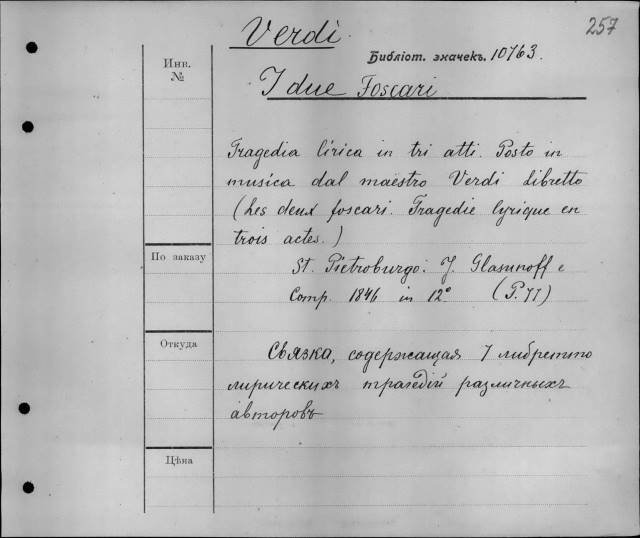 257
Verdi.
Библіот. значекъ. 10763.
Инв.
№
I due Foscari
Tragedia lirica in tri atti. Posto in
musica dal maestro Verdi libretto
(Les deux foscari. Tragedie lyrique en
trois actes.)
По заказу
St. Pietroburgo: J. Glasunoff e
Comp. 1846 in 12° (P. 77)
Откуда
Связка, содержащая 7 либретто
лирическихъ трагедій различныхъ
авторовъ
Цѣна